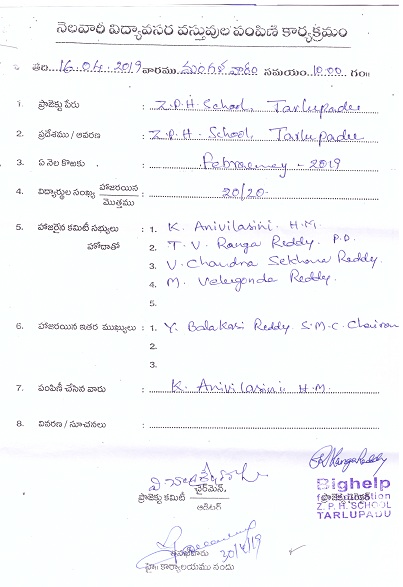 నెలవారీ విద్యావసర వస్తువుల పంపిణి కార్యక్రమం
తేది 16.04.2019 వారము మంగళవారం సమయం 10:00 గం॥
1. ప్రాజెక్టు పేరు : Z.P.H. School, Tarlupadu
2. ప్రదేశము / ఆవరణ : Z.P.H. School, Tarlupadu
3. ఏ నెల కొఱకు : February - 2019
4. విద్యార్థుల సంఖ్య హాజరయిన / మొత్తము : 20/20
5. హాజరైన కమిటీ సభ్యులు : 1. K. Anivilasini H.M
హోదాతో 2. T. V. Ranga Reddy. P.D.
3. V. Chandra Sekhara Reddy.
4. M. Velugonda Reddy.
5.
6. హాజరయిన ఇతర ముఖ్యులు : 1. Y. Balakasi Reddy S.M.C. Chairman
2.
3.
7. పంపిణీ చేసిన వారు : K. Anivilasini H.M.
8. వివరణ / సూచనలు :
ప్రాజెక్టు కమిటీ ఛైర్మెన్, / ఆడిటర్
Bighelp
Z. P. H. SCHOOL
TARLUPADU
30/4/19
హై॥ కార్యాలయము నందు